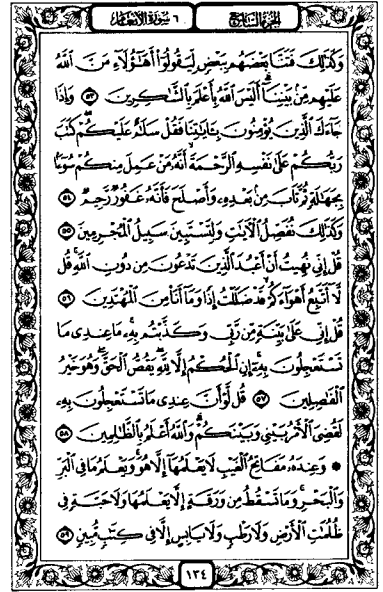 الجزء السابع ٦ سورة الأنعام
وَكَذَٰلِكَ فَتَنَّا بَعْضَهُم بِبَعْضٍ لِّيَقُولُوٓا۟ أَهَـٰٓؤُلَآءِ مَنَّ ٱللَّهُ
عَلَيْهِم مِّنۢ بَيْنِنَآ أَلَيْسَ ٱللَّهُ بِأَعْلَمَ بِٱلشَّـٰكِرِينَ ٥٣ وَإِذَا
جَآءَكَ ٱلَّذِينَ يُؤْمِنُونَ بِـَٔايَـٰتِنَا فَقُلْ سَلَـٰمٌ عَلَيْكُمْ كَتَبَ
رَبُّكُمْ عَلَىٰ نَفْسِهِ ٱلرَّحْمَةَ أَنَّهُۥ مَنْ عَمِلَ مِنكُمْ سُوٓءًۢا
بِجَهَـٰلَةٍ ثُمَّ تَابَ مِنۢ بَعْدِهِۦ وَأَصْلَحَ فَأَنَّهُۥ غَفُورٌ رَّحِيمٌ ٥٤
وَكَذَٰلِكَ نُفَصِّلُ ٱلْـَٔايَـٰتِ وَلِتَسْتَبِينَ سَبِيلُ ٱلْمُجْرِمِينَ ٥٥
قُلْ إِنِّى نُهِيتُ أَنْ أَعْبُدَ ٱلَّذِينَ تَدْعُونَ مِن دُونِ ٱللَّهِ قُل
لَّآ أَتَّبِعُ أَهْوَآءَكُمْ قَدْ ضَلَلْتُ إِذًا وَمَآ أَنَا۠ مِنَ ٱلْمُهْتَدِينَ ٥٦
قُلْ إِنِّى عَلَىٰ بَيِّنَةٍ مِّن رَّبِّى وَكَذَّبْتُم بِهِۦ مَا عِندِى مَا
تَسْتَعْجِلُونَ بِهِۦٓ إِنِ ٱلْحُكْمُ إِلَّا لِلَّهِ يَقُصُّ ٱلْحَقَّ وَهُوَ خَيْرُ
ٱلْفَـٰصِلِينَ ٥٧ قُل لَّوْ أَنَّ عِندِى مَا تَسْتَعْجِلُونَ بِهِۦ
لَقُضِىَ ٱلْأَمْرُ بَيْنِى وَبَيْنَكُمْ وَٱللَّهُ أَعْلَمُ بِٱلظَّـٰلِمِينَ ٥٨
۞ وَعِندَهُۥ مَفَاتِحُ ٱلْغَيْبِ لَا يَعْلَمُهَآ إِلَّا هُوَ وَيَعْلَمُ مَا فِى ٱلْبَرِّ
وَٱلْبَحْرِ وَمَا تَسْقُطُ مِن وَرَقَةٍ إِلَّا يَعْلَمُهَا وَلَا حَبَّةٍ فِى
ظُلُمَـٰتِ ٱلْأَرْضِ وَلَا رَطْبٍ وَلَا يَابِسٍ إِلَّا فِى كِتَـٰبٍ مُّبِينٍ ٥٩
١٣٤